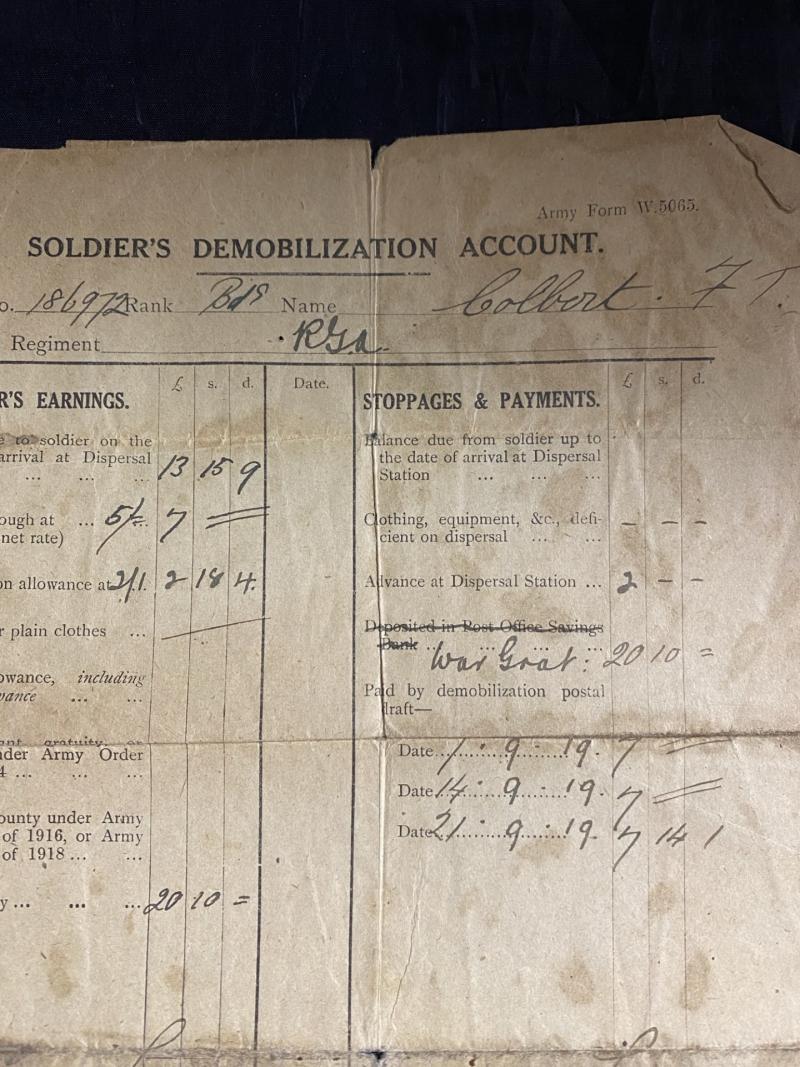 Army Form W.5065.
SOLDIER'S DEMOBILIZATION ACCOUNT.
o. 186972 Rank Bdr Name Colbert. F T.
Regiment R.G.A.
R'S EARNINGS. £ s. d. Date.
e to soldier on the
arrival at Dispersal
... ... ... 13 15 9
ough at ... 5/- 7 =
net rate)
on allowance at 2/1. 2 18 4.
r plain clothes ...
owance, including
vance ... ...
ant gratuity, or
der Army Order
4 ... ... ...
ounty under Army
of 1916, or Army
of 1918 ... ...
y ... ... ... 20 10 =
STOPPAGES & PAYMENTS. £ s. d.
Balance due from soldier up to
the date of arrival at Dispersal
Station ... ... ...
Clothing, equipment, &c., defi- – – –
cient on dispersal ... ...
Advance at Dispersal Station ... 2 – –
Deposited in Post Office Savings
Bank ... War Grat: 20 10 =
Paid by demobilization postal
draft—
Date 7 . 9 . 19. 7 =
Date 14 . 9 . 19. 7 =
Date 21 . 9 . 19. 7 14 1